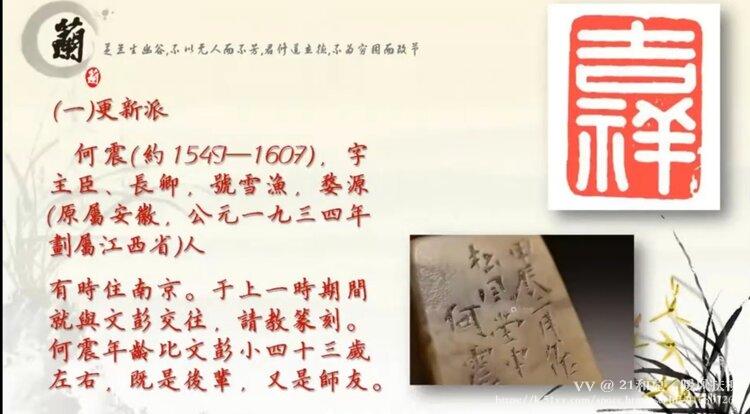 蘭
芝兰生幽谷,不以无人而不芳,君子修道立德,不为穷困而改节
蘭
(一)更新派
何震(約1549—1607),字
主臣、長卿,號雪漁,婺源
(原屬安徽,公元一九三四年
劃屬江西省)人
有時住南京。于上一時期間
就與文彭交往,請教篆刻。
何震年龄比文彭小四十三歲
左右,既是後輩,又是師友。
吉祥
甲辰二月作
松風堂中
何震
VV @ 21和